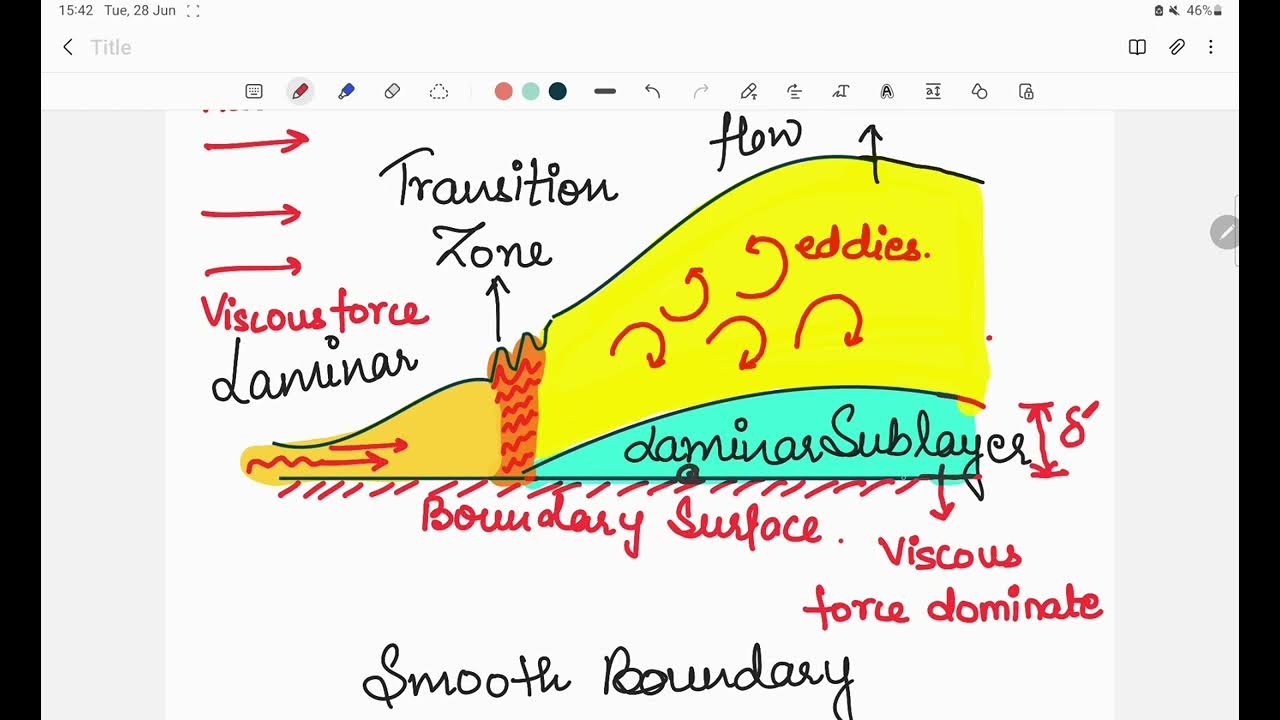 15:42 Tue, 28 Jun
46%
Title
flow
Transition
Zone
eddies.
Viscous force
Laminar
Laminar Sublayer
δ'
Boundary Surface.
Viscous
force dominate
Smooth Boundary